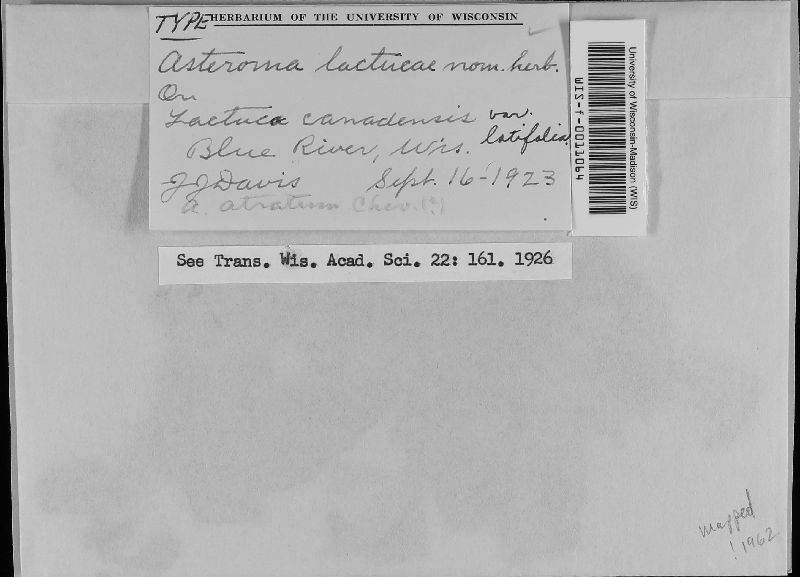 TYPE HERBARIUM OF THE UNIVERSITY OF WISCONSIN
Asteroma lactucae nom. herb.
On
Lactuca canadensis var.
latifolia.
Blue River, Wis.
JJDavis Sept. 16-1923
A. atratum Chev.(?)
University of Wisconsin-Madison (WIS)
WIS-f-0011064
See Trans. Wis. Acad. Sci. 22: 161. 1926
mapped
! 1962